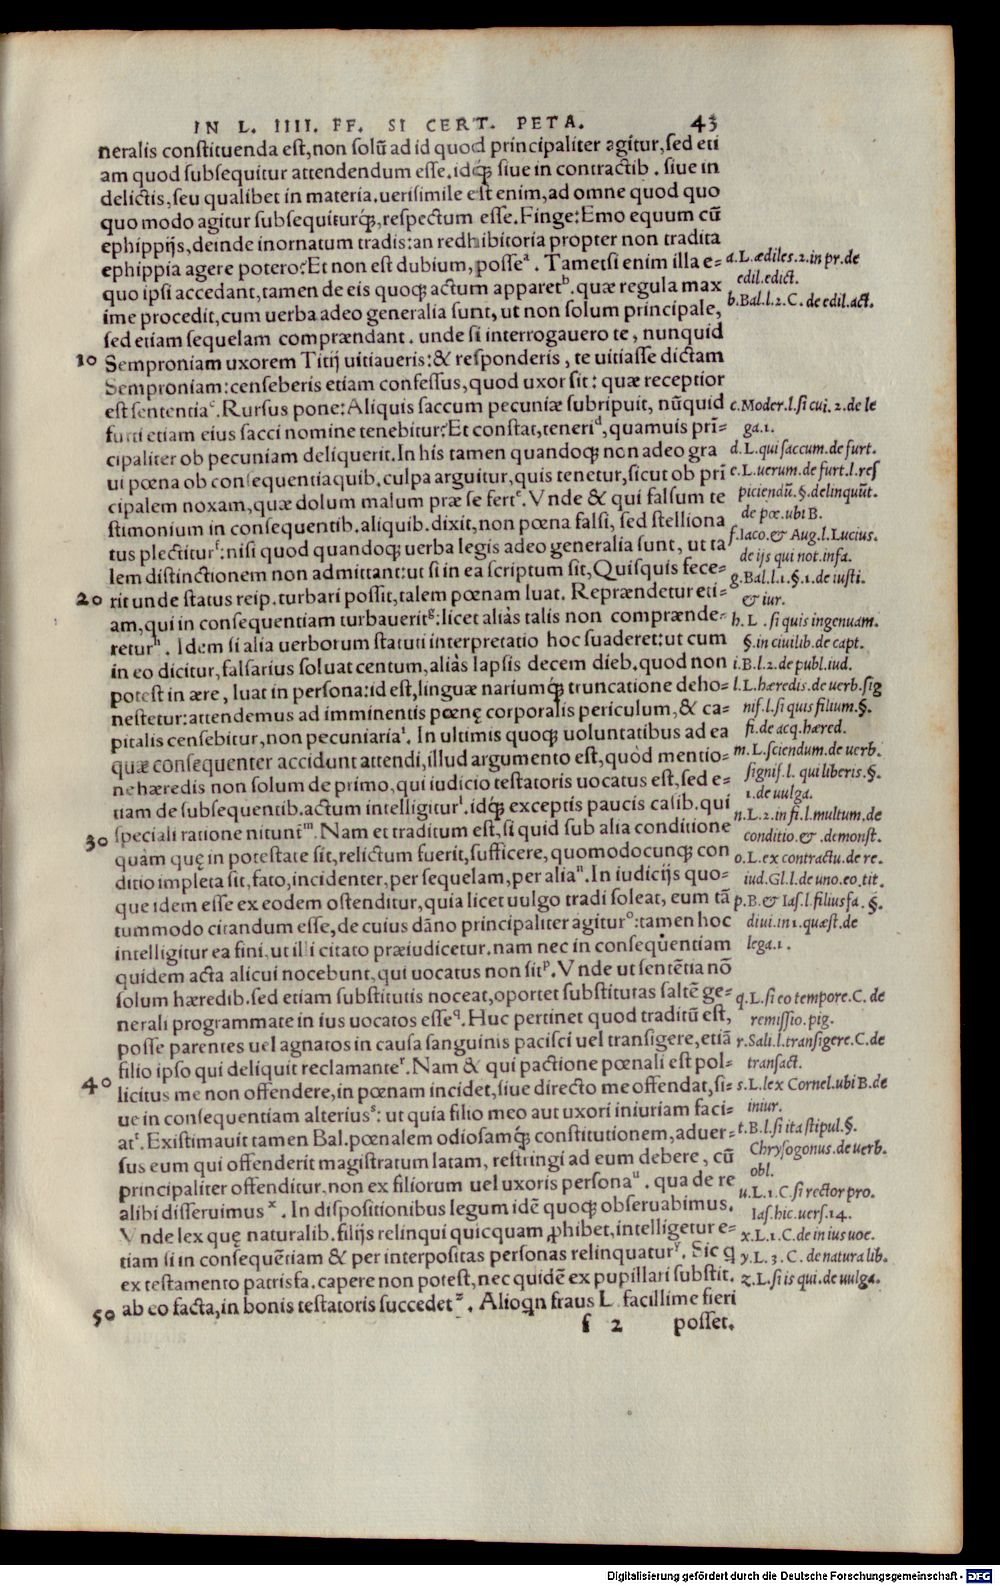 IN L. IIII. FF. SI CERT. PETA. 43
neralis constituenda est, non solū ad id quod principaliter agitur, sed eti
am quod subsequitur attendendum esse. idq́; siue in contractib. siue in
delictis, seu qualibet in materia. uerisimile est enim, ad omne quod quo
quo modo agitur subsequiturq́;, respectum esse. Finge: Emo equum cū
ephippijs, deinde inornatum tradis: an redhibitoria propter non tradita
ephippia agere potero? Et non est dubium, posse a. Tametsi enim illa e=
quo ipsi accedant, tamen de eis quoq; actum apparet b. quæ regula max
ime procedit, cum uerba adeo generalia sunt, ut non solum principale,
sed etiam sequelam comprændant. unde si interrogauero te, nunquid
10 Semproniam uxorem Titij uitiaueris: & responderis, te uitiasse dictam
Semproniam: censeberis etiam confessus, quod uxor sit: quæ receptior
est sententia c. Rursus pone: Aliquis saccum pecuniæ subripuit, nūquid
furti etiam eius sacci nomine tenebitur? Et constat, teneri d, quamuis pri=
cipaliter ob pecuniam deliquerit. In his tamen quandoq; non adeo gra
ui pœna ob consequentia quib. culpa arguitur, quis tenetur, sicut ob pri
cipalem noxam, quæ dolum malum præ se fert e. Vnde & qui falsum te
stimonium in consequentib. aliquib. dixit, non pœna falsi, sed stelliona
tus plectitur f: nisi quod quandoq; uerba legis adeo generalia sunt, ut ta
lem distinctionem non admittant: ut si in ea scriptum sit, Quisquis fece=
20 rit unde status reip. turbari possit, talem pœnam luat. Reprændetur eti=
am, qui in consequentiam turbauerit g: licet aliàs talis non comprænde=
retur h. Idem si alia uerborum statuti interpretatio hoc suaderet: ut cum
in eo dicitur, falsarius soluat centum, aliàs lapsis decem dieb. quod non
potest in ære, luat in persona: id est, linguæ nariumq́; truncatione deho=
nestetur: attendemus ad imminentis pœnę corporalis periculum, & ca=
pitalis censebitur, non pecuniaria i. In ultimis quoq; uoluntatibus ad ea
quæ consequenter accidunt attendi, illud argumento est, quòd mentio=
ne hæredis non solum de primo, qui iudicio testatoris uocatus est, sed e=
tiam de subsequentib. actum intelligitur l. idq́; exceptis paucis casib. qui
30 speciali ratione nitunt m. Nam et traditum est, si quid sub alia conditione
quàm quę in potestate sit, relictum fuerit, sufficere, quomodocunq; con
ditio impleta sit, fato, incidenter, per sequelam, per alia n. In iudicijs quo=
que idem esse ex eodem ostenditur, quia licet uulgo tradi soleat, eum tā
tummodo citandum esse, de cuius dāno principaliter agitur o: tamen hoc
intelligitur ea fini, ut illi citato præiudicetur. nam nec in consequentiam
quidem acta alicui nocebunt, qui uocatus non sit p. Vnde ut sentētia nō
solum hæredib. sed etiam substitutis noceat, oportet substitutas saltē ge=
nerali programmate in ius uocatos esse q. Huc pertinet quod traditū est,
posse parentes uel agnatos in causa sanguinis pacisci uel transigere, etiā
filio ipso qui deliquit reclamante r. Nam & qui pactione pœnali est pol=
40 licitus me non offendere, in pœnam incidet, siue directo me offendat, si=
ue in consequentiam alterius s: ut quia filio meo aut uxori iniuriam faci=
at t. Existimauit tamen Bal. pœnalem odiosamq́; constitutionem, aduer=
sus eum qui offenderit magistratum latam, restringi ad eum debere, cū
principaliter offenditur, non ex filiorum uel uxoris persona u. qua de re
alibi disseruimus x. In dispositionibus legum idē quoq; obseruabimus.
Vnde lex quę naturalib. filijs relinqui quicquam ꝓhibet, intelligetur e=
tiam si in consequētiam & per interpositas personas relinquatur y. Sic q
ex testamento patrisfa. capere non potest, nec quidē ex pupillari substit.
50 ab eo facta, in bonis testatoris succedet z. Alioqn fraus L. facillime fieri
f 2 posset.
a. L. ædiles. 2. in pr. de
edil. edict.
b. Bal. l. 2. C. de edil. act.
c. Moder. l. si cui. 2. de le
ga. 1.
d. L. qui saccum. de furt.
e. L. uerum. de furt. l. res
piciendū. §. delinquūt.
de pœ. ubi B.
f. Iaco. & Aug. l. Lucius.
de ijs qui not. infa.
g. Bal. l. 1. §. 1. de iusti.
& iur.
h. L. si quis ingenuam.
§. in ciuilib. de capt.
i. B. l. 2. de publ. iud.
l. L. hæredis. de uerb. sig
nif. l. si quis filium. §.
fi. de acq. hæred.
m. L. sciendum. de uerb.
signif. l. qui liberis. §.
1. de uulga.
n. L. 2. in fi. l. multum. de
conditio. & . demonst.
o. L. ex contractu. de re.
iud. Gl. l. de uno. eo. tit.
p. B. & Ias. l. filiusfa. §.
diui. in 1. quæst. de
lega. 1.
q. L. si eo tempore. C. de
remissio. pig.
r. Sali. l. transigere. C. de
transact.
s. L. lex Cornel. ubi B. de
iniur.
t. B. l. si ita stipul. §.
Chrysogonus. de uerb.
obl.
u. L. 1. C. si rector pro.
Ias. hic. uers. 14.
x. L. 1. C. de in ius uoc.
y. L. 3. C. de natura lib.
z. L. si is qui. de uulga.
Digitalisierung gefördert durch die Deutsche Forschungsgemeinschaft - DFG